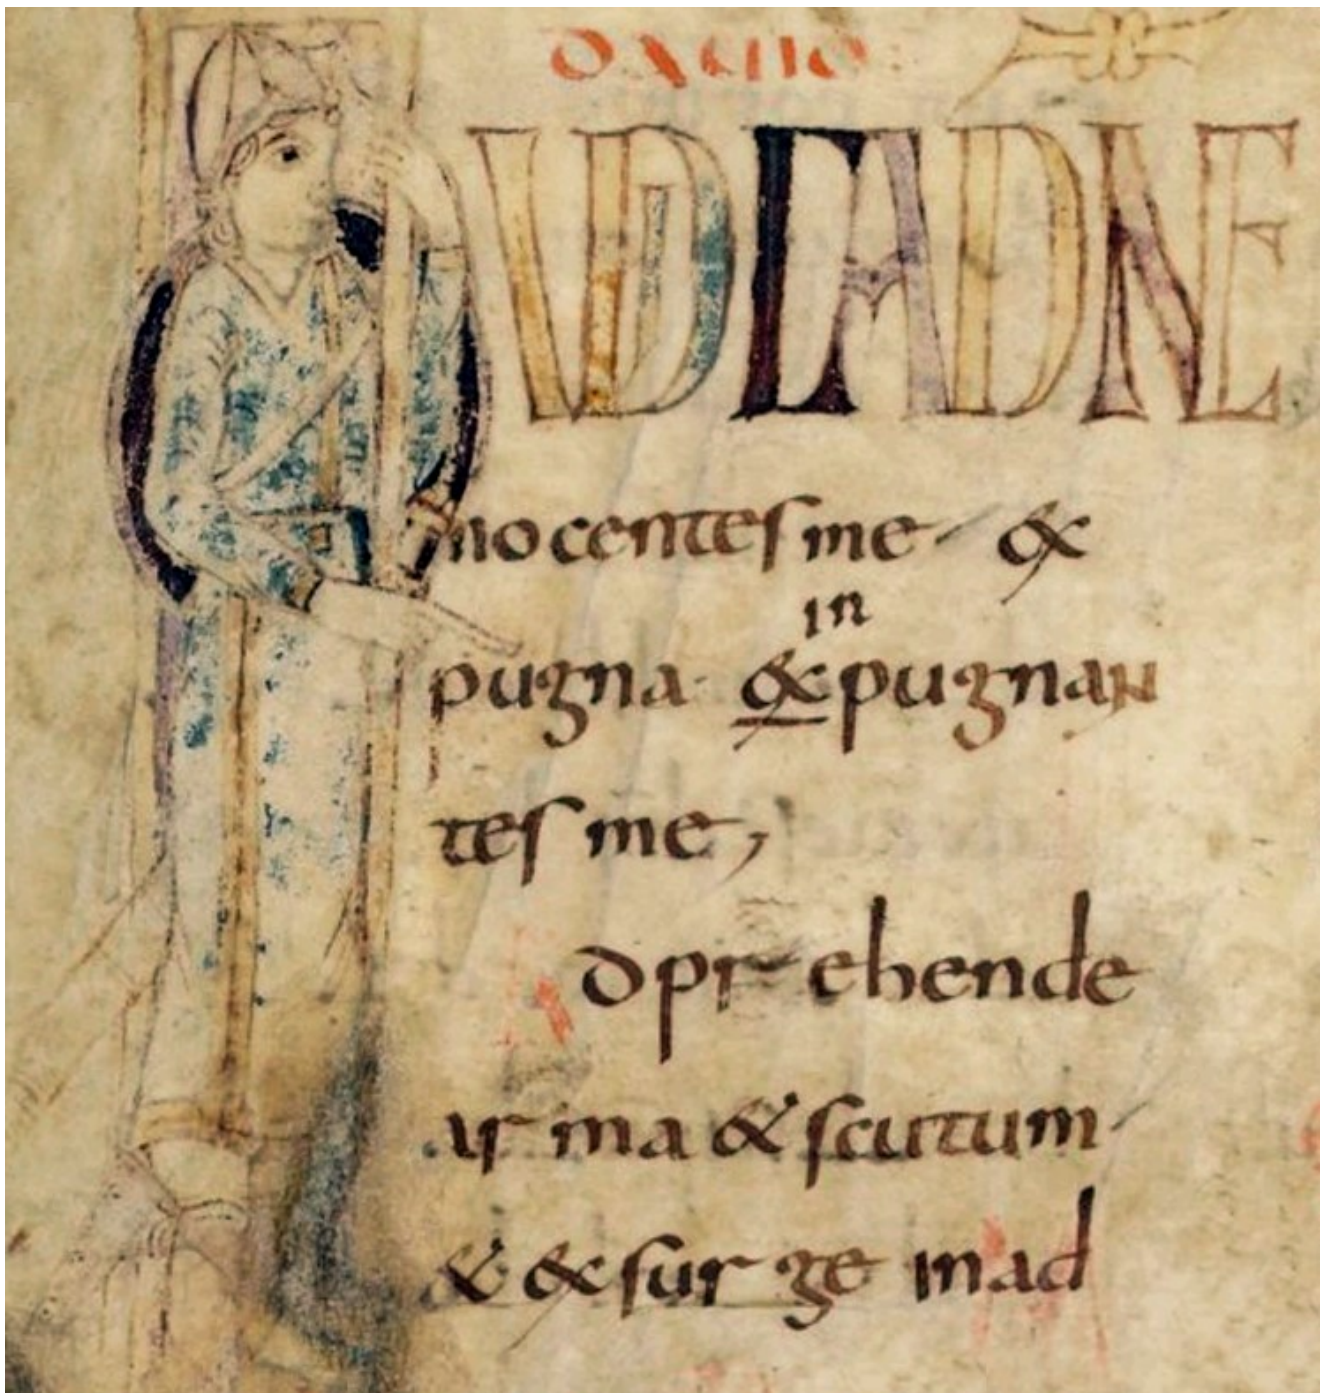 dauid
IUDICA DNE
nocentes me &
in
pugna· &pugnan
tes me,
Adprehende
arma & scutum
& &surge inad